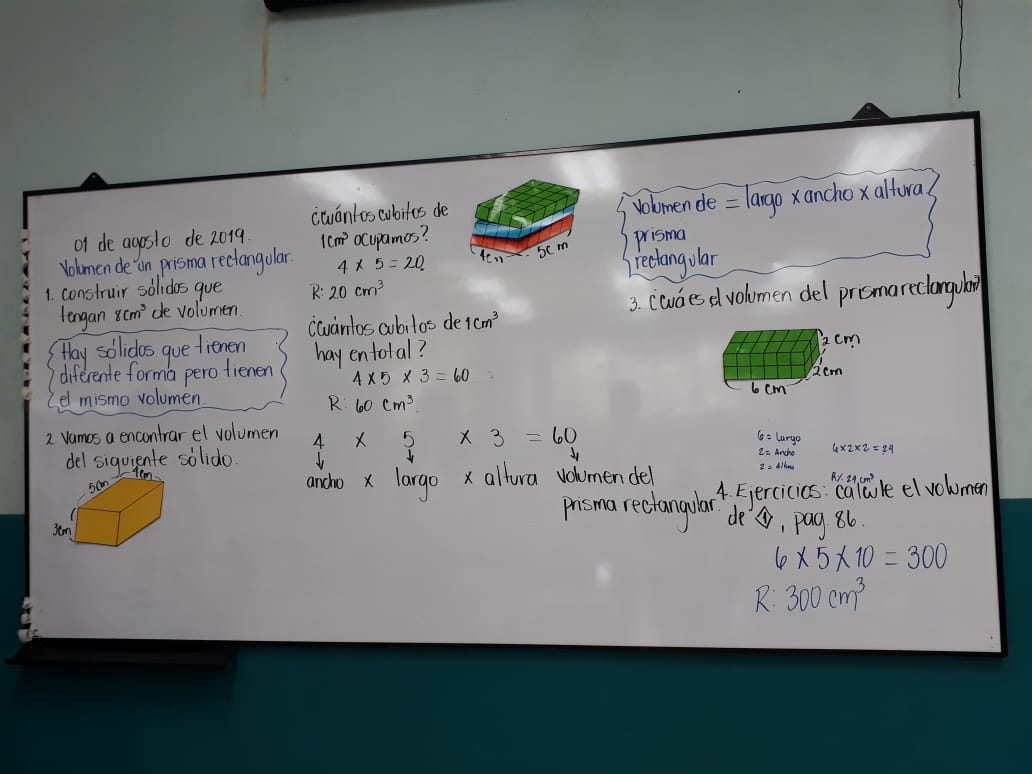 01 de agosto de 2019.
Volumen de un prisma rectangular.
1. construir sólidos que
tengan 8cm³ de volumen.
Hay sólidos que tienen
diferente forma pero tienen
el mismo volumen.
2. Vamos a encontrar el volumen
del siguiente sólido.
5cm
4cm
3cm
¿cuántos cubitos de
1cm³ ocupamos?
4 x 5 = 20
R: 20 cm³
4cm
5cm
¿cuántos cubitos de 1cm³
hay en total?
4 x 5 x 3 = 60
R: 60 cm³.
4 x 5 x 3 = 60
ancho x largo x altura volumen del
prisma rectangular.
Volumen de = largo x ancho x altura
prisma
rectangular
3. ¿cuál es el volumen del prisma rectangular?
2 cm
2 cm
6 cm
6 = Largo
2 = Ancho
2 = Altura
6x2x2 = 24
R/. 24 cm³
4. Ejercicios: calcule el volumen
de 1, pag. 86.
6 x 5 x 10 = 300
R: 300 cm³